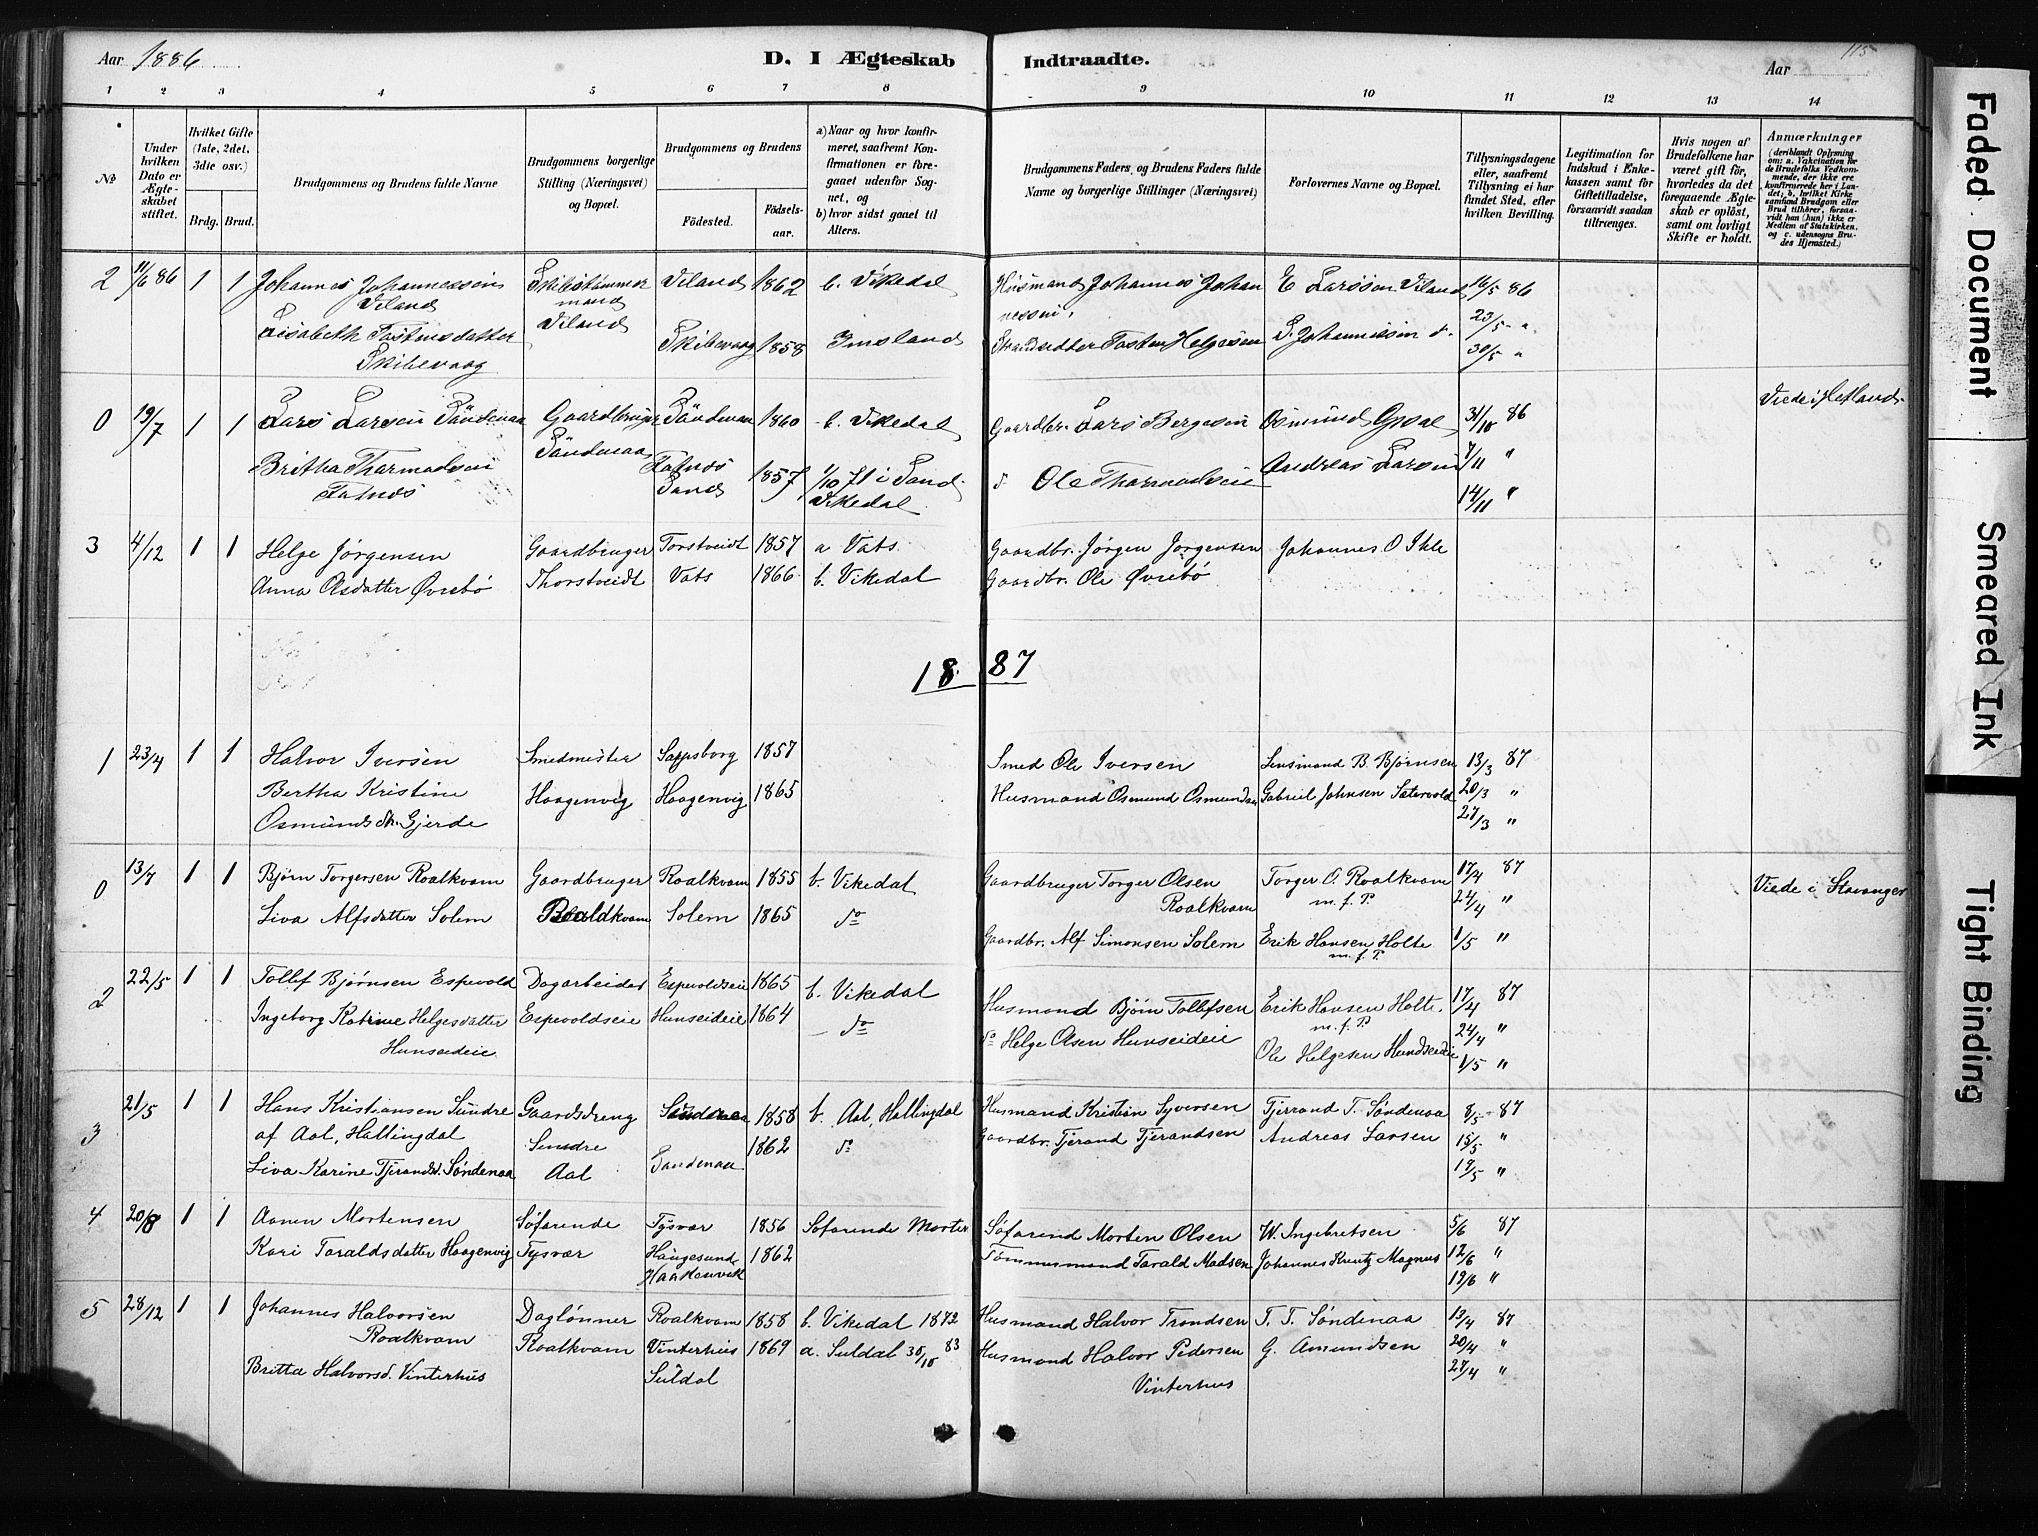 Aar 1886
D. I Ægteskab Indtraadte.
115
Aar
1 2 3 4 5 6 7 8 9 10 11 12 13 14
№
Under hvilken Dato er Ægteskabet stiftet.
Hvilket Gifte (1ste, 2det, 3die osv.)
Brdg. Brud.
Brudgommens og Brudens fulde Navne
Brudgommens borgerlige Stilling (Næringsvei) og Bopæl.
Brudgommens og Brudens
Födested. Födsels-aar.
a) Naar og hvor konfirmeret, saafremt Konfirmationen er foregaaet udenfor Sognet, og
b) hvor sidst gaaet til Alters.
Brudgommens Faders og Brudens Faders fulde Navne og borgerlige Stillinger (Næringsvei)
Forlovernes Navne og Bopæl.
Tillysningsdagene eller, saafremt Tillysning ei har fundet Sted, efter hvilken Bevilling.
Legitimation for Indskud i Enkekassen samt for Giftetilladelse, forsaavidt saadan tiltrænges.
Hvis nogen af Brudefolkene har været gift för, hvorledes da det foregaaende Ægteskab er oplöst, samt om lovligt Skifte er holdt.
Anmærkninger (deriblandt Oplysning om: a. Vakcination for de Brudefolks Vedkommende, der ikke ere konfirmerede her i Landet; b. hvilket Kirkesamfund Brudgom eller Brud tilhörer, forsaavidt han (hun) ikke er Medlem af Statskirken, og c. udensogns Brudes Hjemsted.)
2 11/6 86 1 1 Johannes Johannessen Viland Skibstømmermand Viland Viland 1862 b. Vikedal Husmand Johannes Johannessen E Larssen Viland 16/5 86
Lisabeth Tastensdatter Skibevaag Skibevaag 1858 Imsland Strandsidder Tasten Helgesen S. Johannessen do. 23/5 "
30/5 "
0 19/7 1 1 Lars Larsen Søndenaa Gaardbruger Søndenaa Søndenaa 1860 b. Vikedal Gaardbr. Lars Bergesen Osmund 31/10 86 Viede i Hetland
Britha Tharmodsen Falnes Falnes Sand 1857 1/10 71 i Sand Vikedal do Ole Tharmodsen Andreas Larsen 7/11 "
14/11 "
3 4/12 1 1 Helge Jørgensen Gaardbruger Torstveidt 1857 a Vats Gaardbr. Jørgen Jørgensen Johannes O
Anna Olsdatter Øvrebø Thorstveidt Vats 1866 b. Vikedal Gaardbr. Ole Øvrebø
1887
1 23/4 1 1 Halvor Iversen Smedmester Sarpsborg 1857 Smed Ole Iversen Lensmand B. Bjørnsen 13/3 87
Bertha Kristine Haagenvig Haagenvig 1865 Husmand Osmund Osmundsen Gabriel Johnsen Sætervold 20/3 "
Osmundsdtr. Gjerde 27/3 "
0 13/7 1 1 Bjørn Torgersen Roalkvam Gaardbruger Roalkvam 1855 b. Vikedal Gaardbruger Torger Olsen Roalkvam Torger O. Roalkvam m. f. P. 17/4 87 Viede i Stavanger
Siva Alfsdatter Solem Roaldkvam Solem 1865 do 24/4 "
Gaardbr. Alf Simonsen Solem Erik Hansen Holte m. f. P. 1/5 "
2 22/5 1 1 Tollef Bjørnsen Espevold Dagarbeider Espevoldseie 1865 b. Vikedal Husmand Bjørn Tollefsen Erik Hansen Holte m. f. P. 17/4 87
Ingeborg Katrine Helgesdatter Hunseideie Espevoldseie Hunseideie 1864 do do Helge Olsen Hunseideie Ole Helgesen Hundseideie 24/4 "
1/5 "
3 21/5 1 1 Hans Kristiansen Sundre Gaardsdreng 1858 b. Aal, Hallingdal Husmand Kristian Syversen Tjerrand T. Søndenaa 8/5 87
af Aal, Hallingdal Sundre 1862 do Gaardbr. Tjerand Tjerandsen Andreas Larsen 15/5 "
Siva Karine Tjerandsd. Søndenaa Aal Sandenaa 19/5 "
4 20/8 1 1 Aanen Mortensen Søfarende Tysvær 1856 Søfarende Morten Søfarend Morten Olsen W. Ingebretsen 5/6 87
Kari Taraldsdatter Haagenvig Tysvær Haugesund Haakonvik 1862 Tømmermand Tarald Madsen Johannes Krentz Magnus 12/6 "
19/6 "
5 28/12 1 1 Johannes Halvorsen Roalkvam Daglønner Roalkvam 1858 b. Vikedal 1872 Husmand Halvor Trondsen T. T. Søndenaa 13/4 87
Britta Halvorsd. Vinterhus Roalkvam Vinterhus Suldal 1869 a. Suldal 30/10 83 Husmand Halvor Pedersen Vinterhus G. Amundsen 20/4 "
27/4 "
Faded Document
Smeared Ink
Tight Binding